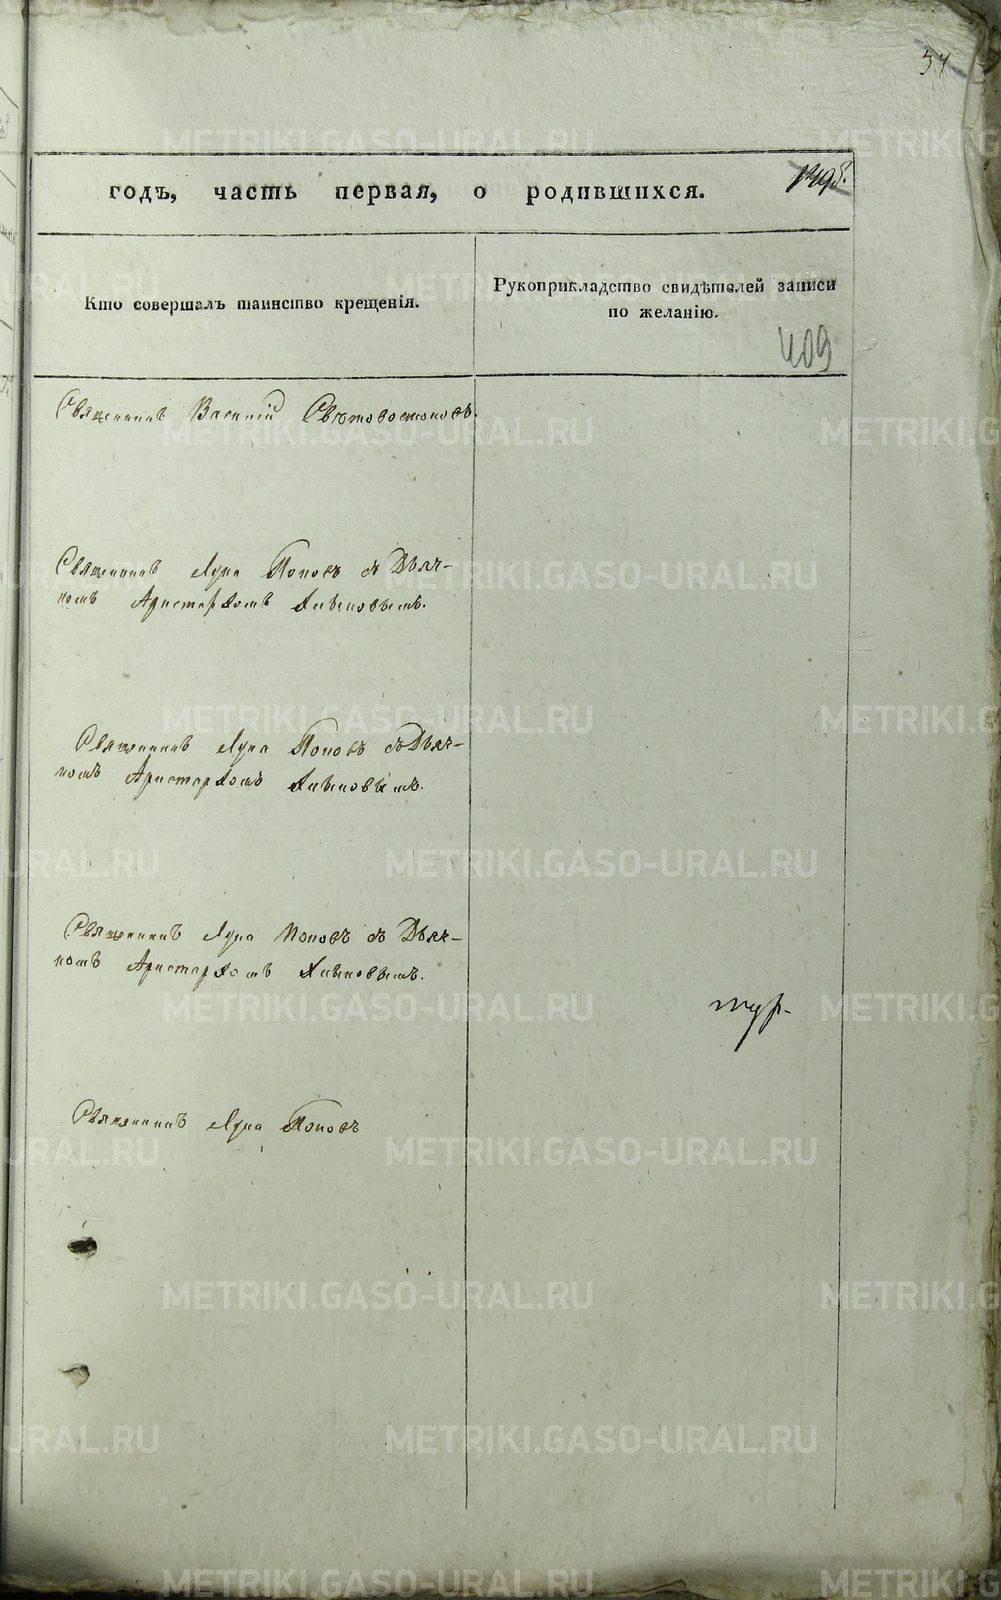 годъ, часть первая, о родившихся.
Кто совершалъ таинство крещенія.
Рукоприкладство свидѣтелей записи
по желанію.
409
Священникъ Василій Свѣтовостоковъ.
Священникъ Лука Поповъ съ Дьяч-
комъ Аристархомъ
Священникъ Лука Поповъ съ Дьяч-
комъ Аристархомъ
Священникъ Лука Поповъ съ Дьяч-
комъ Аристархомъ
Священникъ Лука Поповъ
METRIKI.GASO-URAL.RU